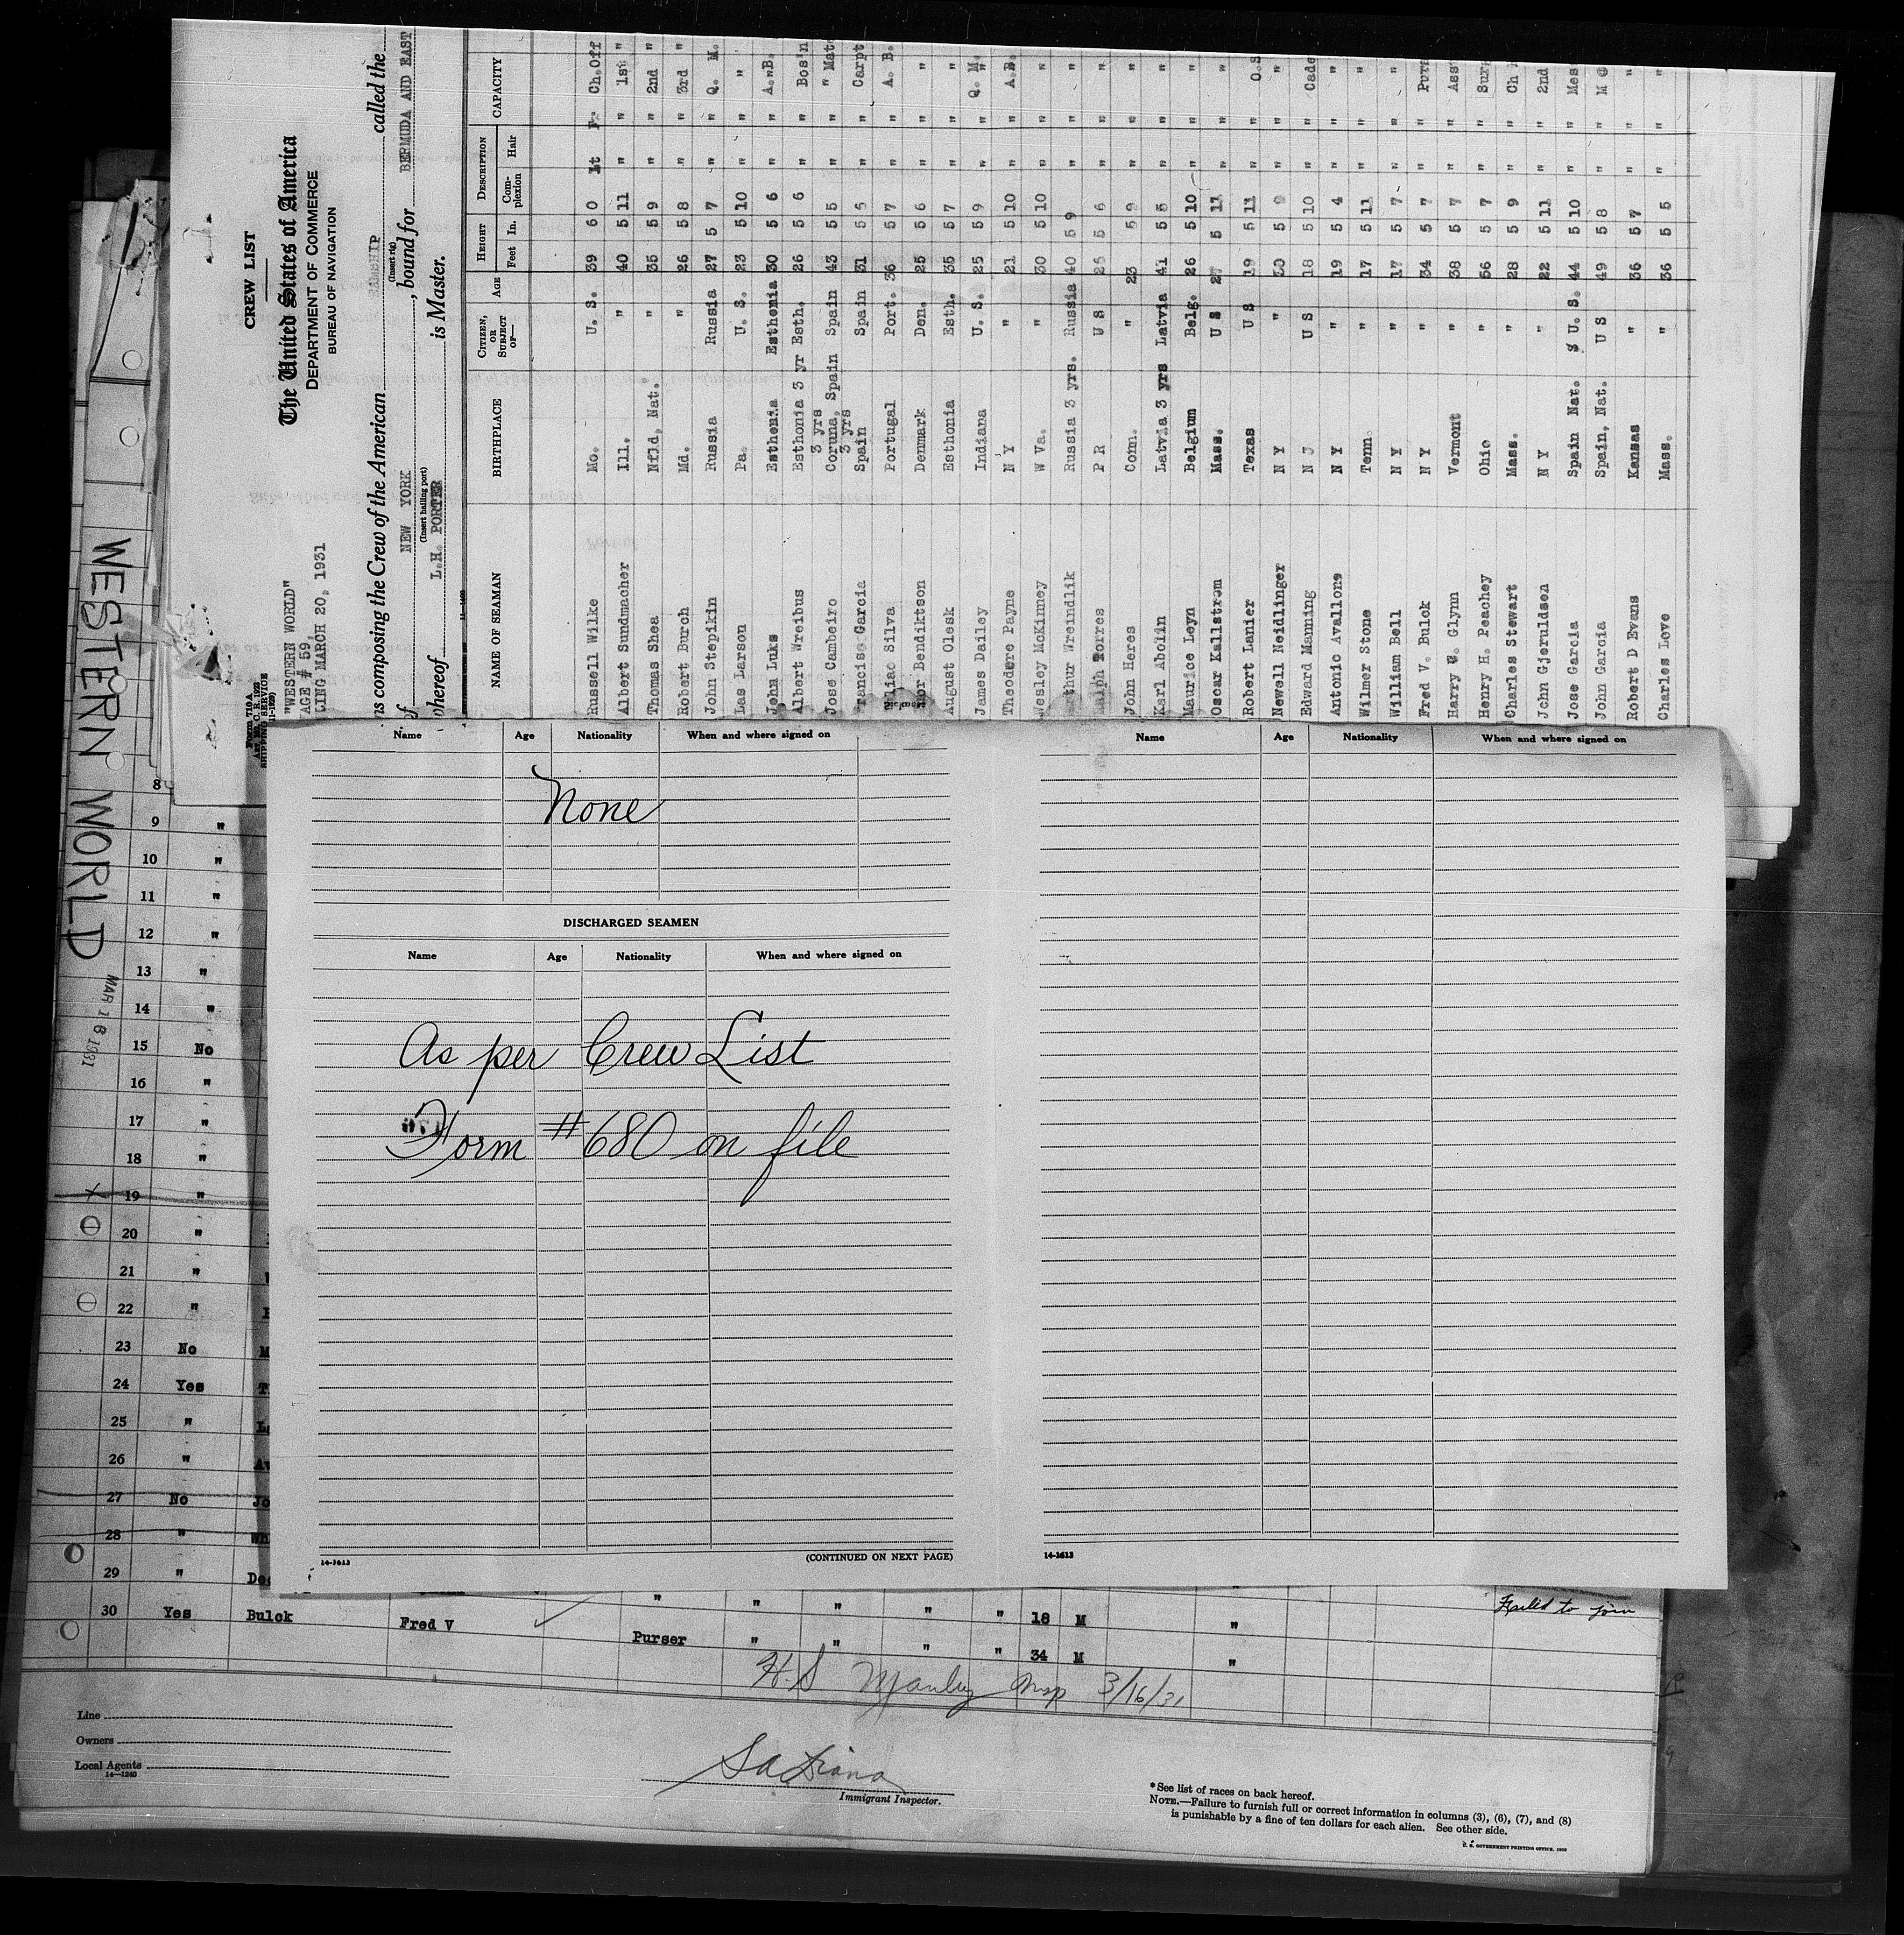 CREW LIST
The United States of America
DEPARTMENT OF COMMERCE
BUREAU OF NAVIGATION
"WESTERN WORLD"
AGE # 59.
LING MARCH 20, 1931
ns composing the Crew of the American called the
(Insert rig)
of NEW YORK, bound for BERMUDA AND EAST
(Insert hailing port)
whereof L.H. PORTER is Master.
NAME OF SEAMAN BIRTHPLACE CITIZEN, OR SUBJECT OF— AGE HEIGHT Feet In. DESCRIPTION Complexion Hair CAPACITY
Russell Wilke Mo. U. S. 39 6 0 Lt Ch.Off
Albert Sundmacher Ill. " 40 5 11 " " 1st "
Thomas Shea Nfld. Nat. " 35 5 9 " " 2nd "
Robert Burch Md. " 26 5 8 " " 3rd "
John Stepikin Russia Russia 27 5 7 " " Q. M.
Las Larson Pa. U. S. 23 5 10 " " "
John Luks Esthonia Esthonia 30 5 6 " " A.B.
Albert Wreibus Esthonia 3 yr Esth. 26 5 6 " " Bos'n
Jose Cambeiro Coruna, Spain 3 yrs Spain 43 5 5 " " " Mat
Francisc Garcia Spain 3 yrs Spain 31 5 5 " " Carpt
Silva Portugal Port. 36 5 7 " " A. B.
Bendiktson Denmark Den. 25 5 6 " " "
August Olesk Esthonia Esth. 35 5 7 " " "
James Dailey Indiana U. S. 25 5 9 " " Q. M.
Theodore Payne N Y " 21 5 10 " " A.B.
Wesley McKinney W Va. " 30 5 10 " " "
Arthur Wreindlik Russia 3 yrs. Russia 40 5 9 " " "
Ralph Torres P R U S 25 5 6 " " "
John Heres Conn. " 23 5 9 " " "
Karl Abolin Latvia 3 yrs Latvia 41 5 5 " " "
Maurice Leyn Belgium Belg. 26 5 10 " " "
Oscar Kallstrom Mass. U S 27 5 11 " " "
Robert Lanier Texas U S 19 5 11 " " O.S
Newell Neidlinger N Y " 20 5 9 " " "
Edward Manning N J U S 18 5 10 " " Cade
Antonio Avallone N Y " 19 5 4 " " "
Wilmer Stone Tenn. " 17 5 11 " " "
William Bell N Y " 17 5 7 " " "
Fred V. Bulck N Y " 34 5 7 " " Purs
Harry W. Glynn Vermont " 38 5 7 " " Ass
Henry H. Peachey Ohio " 56 5 7 " " Surg
Charles Stewart Mass. " 28 5 9 " " Ch
John Gjeruldsen N Y " 22 5 11 " " 2nd
Jose Garcia Spain Nat. U. S. 44 5 10 " " Mes
John Garcia Spain, Nat. U S 49 5 8 " " M
Robert D Evans Kansas " 36 5 7 " " "
Charles Love Mass. " 36 5 5 " " "
Form 710A
SHIPPING SERVICE
WESTERN WORLD
MAR 16 1931
Name Age Nationality When and where signed on
None
DISCHARGED SEAMEN
Name Age Nationality When and where signed on
As per Crew List
Form #680 on file
14-1613
(CONTINUED ON NEXT PAGE)
Name Age Nationality When and where signed on
14-1613
8
9 "
10 "
11 "
12 "
13 "
14 "
15 No
16 "
17 "
18 "
19 "
20 "
21 "
22 "
23 No M
24 Yes T
25 "
26 "
27 No Jo
28 " Wh
29 " De " " " " " 18 M " Failed to join
30 Yes Bulck Fred V Purser " " " " 34 M "
H.S Manley Insp 3/16/31
Line
Owners
Local Agents
14—1240
Immigrant Inspector.
*See list of races on back hereof.
NOTE.—Failure to furnish full or correct information in columns (3), (6), (7), and (8)
is punishable by a fine of ten dollars for each alien. See other side.
U. S. GOVERNMENT PRINTING OFFICE